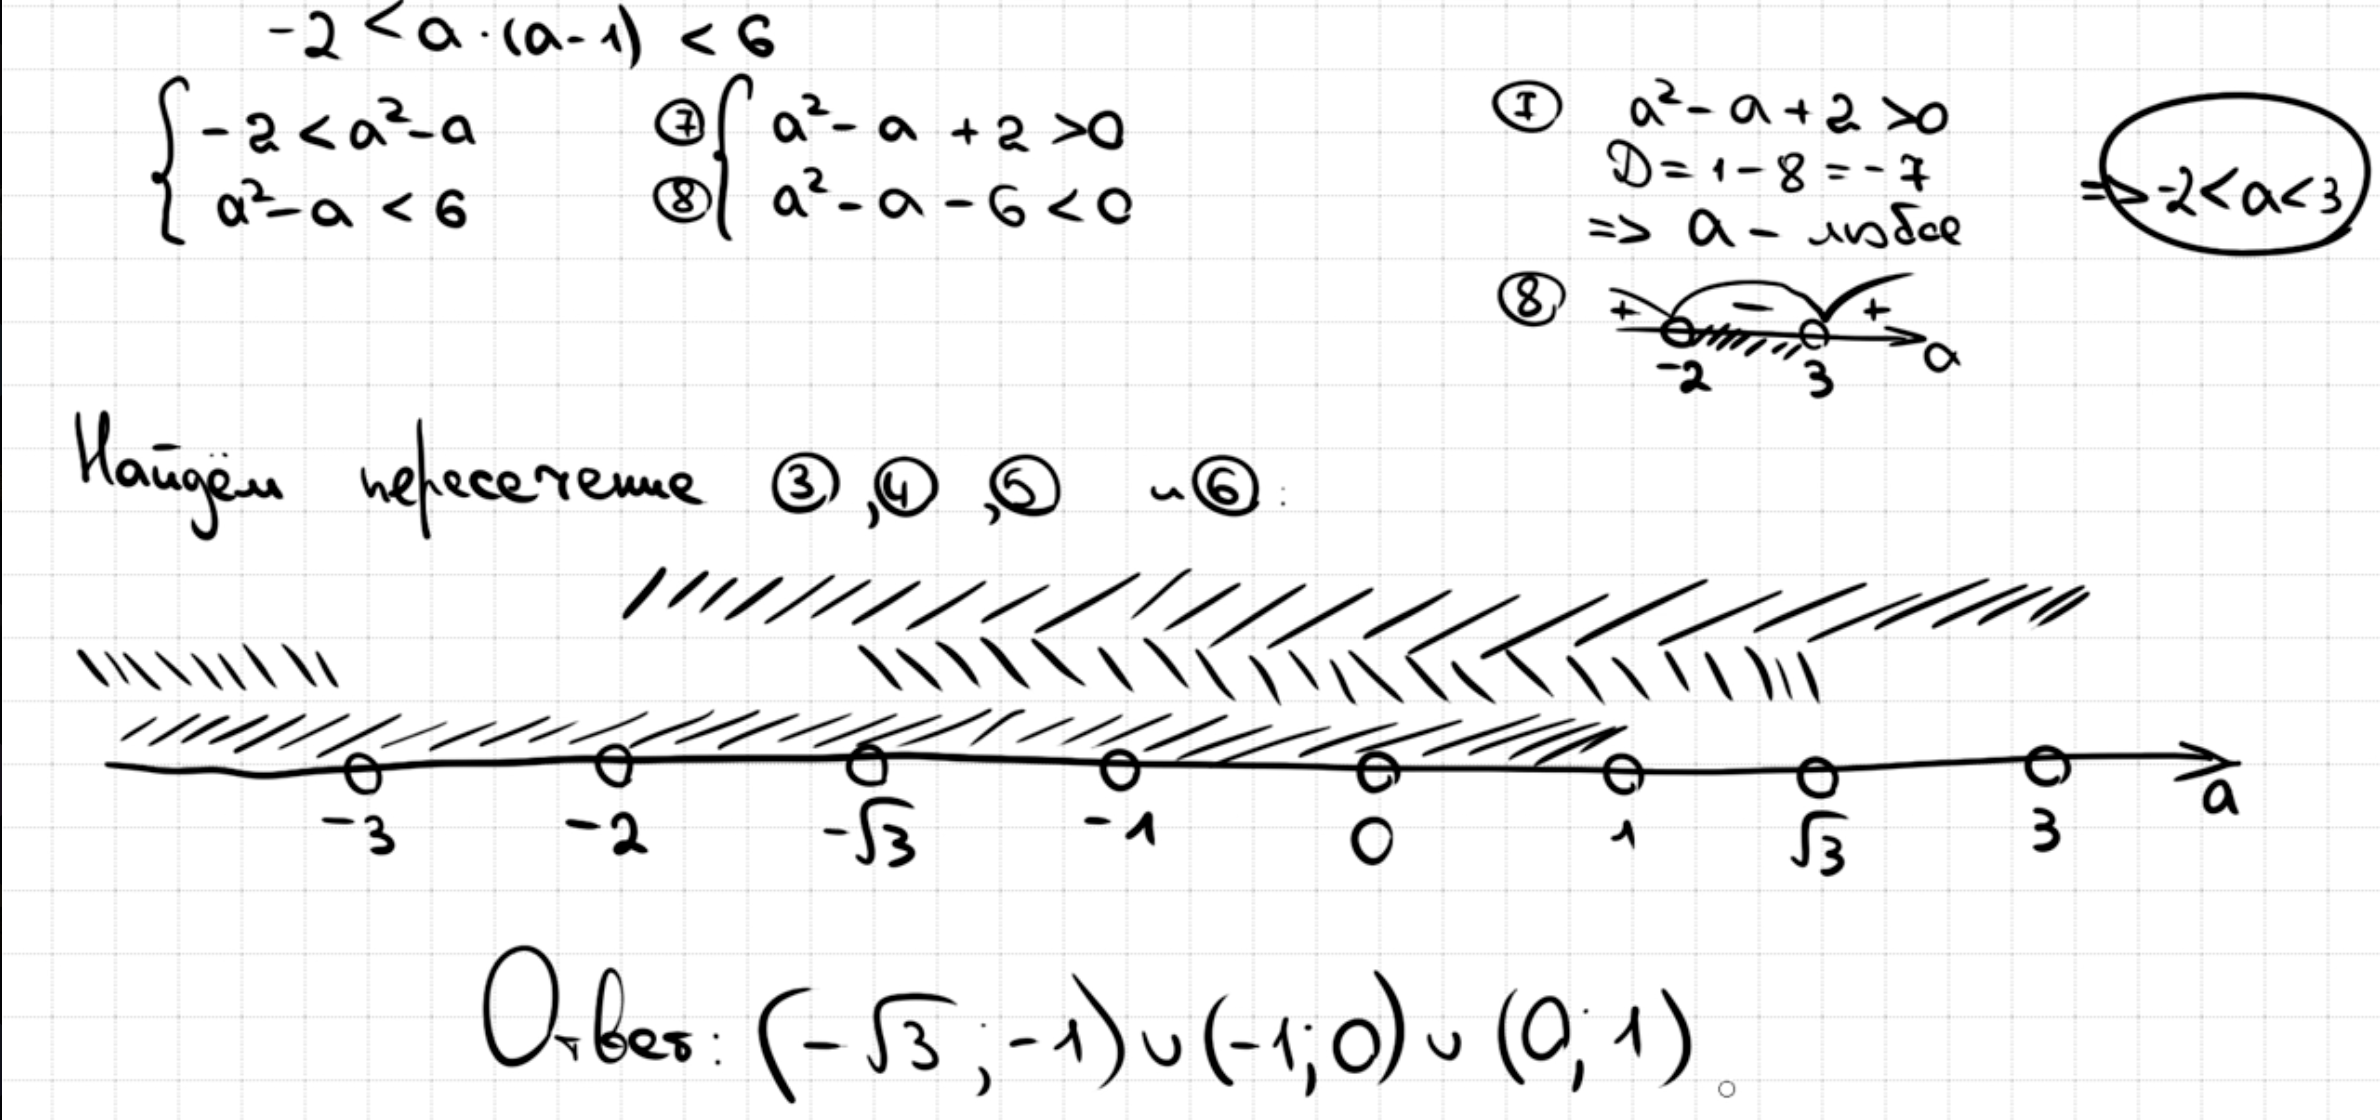 -2 < a · (a-1) < 6
{ -2 < a² - a
a² - a < 6
⑦ { a² - a + 2 > 0
⑧ a² - a - 6 < 0
Ⓘ a² - a + 2 > 0
D = 1 - 8 = -7
=> a - любое
=> -2 < a < 3
⑧ + - +
-2 3 a
Найдём пересечение ③, ④, ⑤ и ⑥:
-3 -2 -√3 -1 0 1 √3 3 a
Ответ: (-√3; -1) ∪ (-1; 0) ∪ (0; 1).